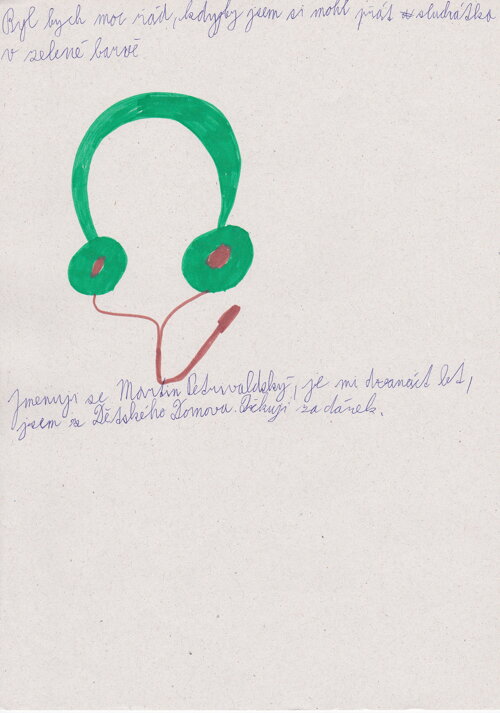 Byl bych moc rád, kdyby jsem si mohl přát sluchátka
v zelené barvě
Jmenuji se Martin Petrwaldský, je mi dvanáct let,
jsem z Dětského Domova. Děkuji za dárek.